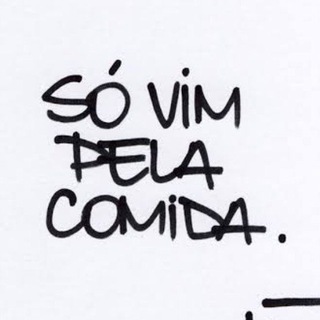 SÓ ViM
PELA
COMiDA.